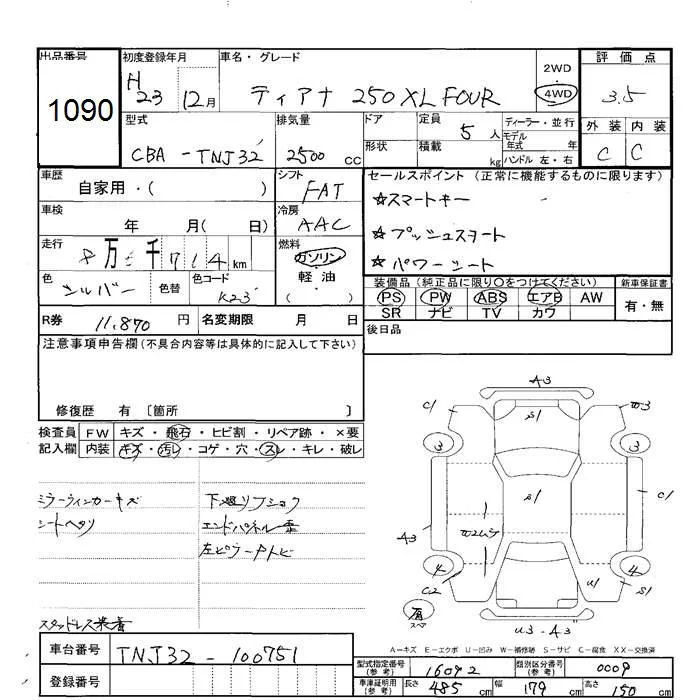 出品番号
1090
初度登録年月
H
23 12月
車名・グレード
ティアナ 250XL FOUR
2WD
4WD
評価点
3.5
外装 内装
C C
型式
CBA-TNJ32
排気量
2500 cc
ドア
形状
定員
5 人
積載
kg
ディーラー・並行
モデル
年式 年
ハンドル 左・右
車歴
自家用・( )
シフト
FAT
車検
年 月( 日)
冷房
AAC
走行
8万 千714 km
燃料
ガソリン
軽・油
( )
色
シルバー
色替
色コード
K23
R券 11.870 円
名変期限 月 日
セールスポイント(正常に機能するものに限ります)
☆スマートキー
☆プッシュスタート
☆パワーシート
装備品(純正品に限り〇をつけてください)
PS PW ABS エアB AW
SR ナビ TV カワ
新車保証書
有・無
後日品
注意事項申告欄(不具合内容等は具体的に記入して下さい)
修復歴 有 〔箇所 〕
検査員
記入欄
FW キズ・飛石・ヒビ割・リペア跡・×要
内装 キズ・汚レ・コゲ・穴・スレ・キレ・破レ
ミラーウィンカーキズ
シートヘタリ
スタッドレス装着
下廻リフショク
エンドパネル歪
左ピラー内トビ
A3
C1
S1
3
3
S1
C1
A3
4
C2
U1
4
S1
スペア
U3-A3
A-キズ E-エクボ U-凹み W-補修跡 S-サビ C-腐食 XX-交換済
車台番号
TNJ32-100751
登録番号
型式指定番号
(参考)
16092
類別区分番号
(参考)
0009
車庫証明用
(参考)
長さ 485 cm
幅 179 cm
高さ 150 cm